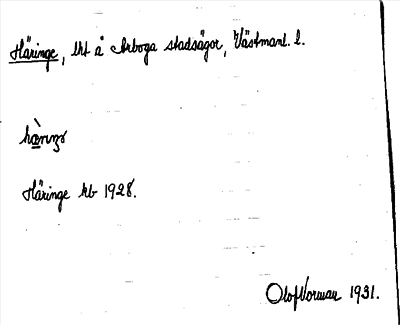 Häringe, lht å Arboga stadsägor, Västmanl. l.
hæ̀riŋə
Häringe kb 1928.
Olof Norman 1931.